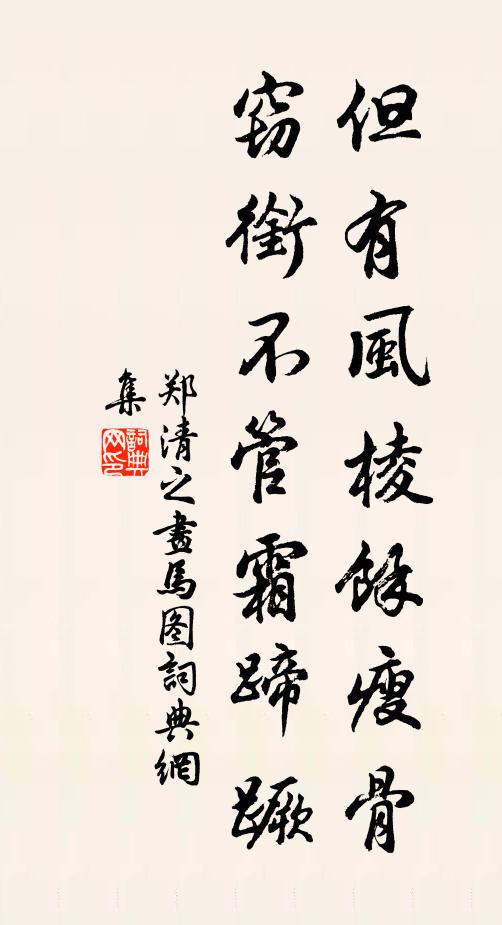 但有風棱餘瘦骨
竊銜不管霜蹄蹶
郑清之畫馬图詞典網
集
詞典
网印